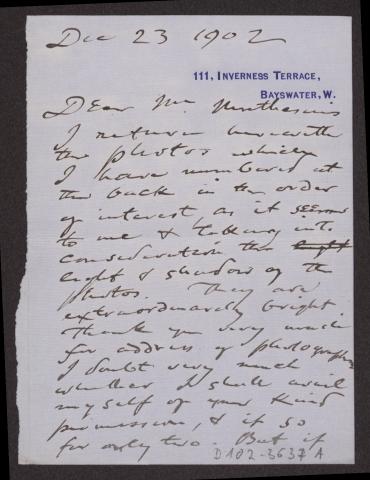 Dec 23 1902
111, INVERNESS TERRACE,
BAYSWATER, W.
Dear Mr Muthesius
I return herewith
the photos which
I have numbered at
the back in the order
of interest, as it seems
to me & taking into
consideration the light
light & shadow of the
photos. They are
extraordinarily bright
Thank you very much
for address of photographer
I doubt very much
whether I shall avail
myself of your kind
permission, & if so
for only two. But if
D102-3637 A